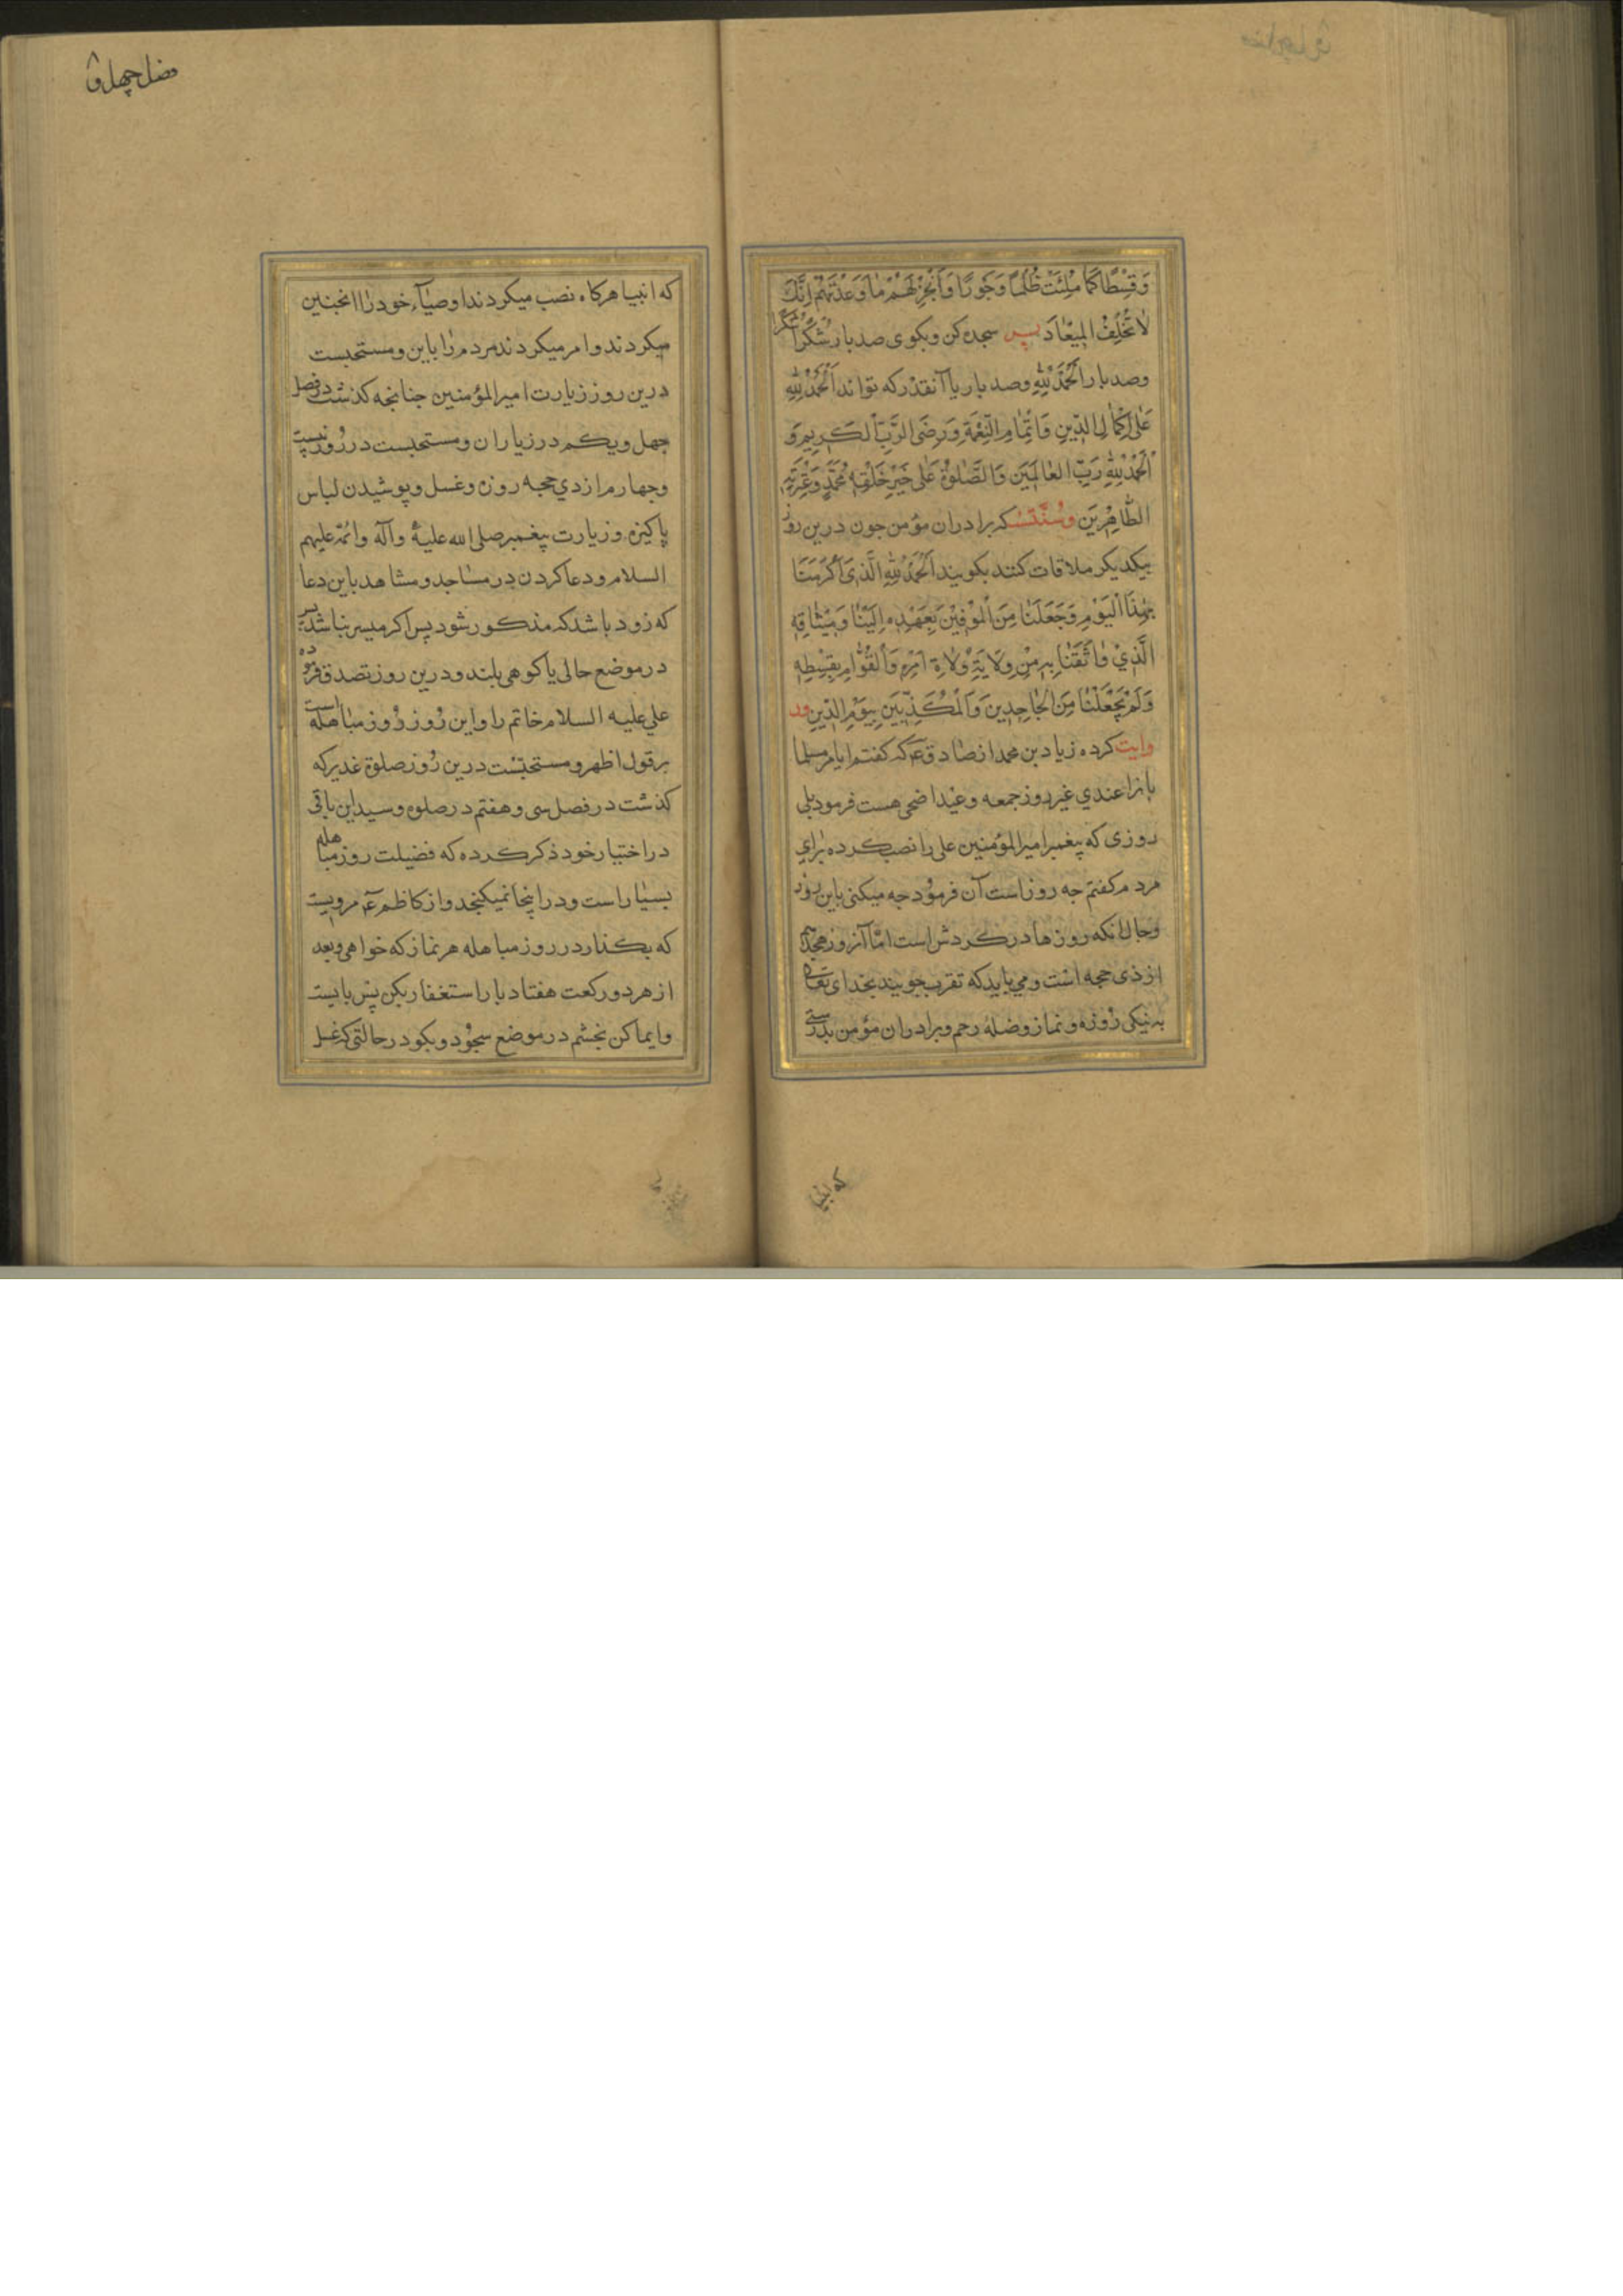 وَقِسْطًا كَمٰا مُلِئَتْ ظُلْمًا وَجَوْرًا وَاَنْجِزْ لَهُمْ مٰا وَعَدْتَهُمْ اِنَّكَ
لاٰ تُخْلِفُ الْمِيْعٰادَ پس سجده كن وبكوى صد بار شُكْرًا شُكْرًا
وصد بار اَلْحَمْدُ لِلّٰهِ وصد بار يا آنقدر كه تواند اَلْحَمْدُ لِلّٰهِ
عَلٰى اِكْمٰالِ الدِّينِ وَاِتْمٰامِ النِّعْمَةِ وَرِضَى الرَّبِّ الْكَرِيمِ وَ
الْحَمْدُ لِلّٰهِ رَبِّ الْعٰالَمِيَن وَالصَّلٰوةُ عَلٰى خَيْرِ خَلْقِهِ مُحَمَّدٍ وَعِتْرَتِهِ
الطّٰاهِرِيَن وسُنّتست كه برادران مؤمن جون درين روز
بيكديكر ملاقات كنند بكويند اَلْحَمْدُ لِلّٰهِ الَّذِى اَكْرَمَنٰا
بِهٰذَا الْيَوْمِ وَجَعَلَنٰا مِنَ الْمُوْفِيْنَ بِعَهْدِهِ اِلَيْنٰا وَمِيْثٰاقِهِ
الَّذِيْ وٰاثَقَنٰا بِهِ مِنْ وِلاٰيَةِ وُلاٰةِ اَمْرِهِ وَالْقُوّٰامِ بِقِسْطِهِ
وَلَمْ يَجْعَلْنٰا مِنَ الْجٰاحِدِينَ وَالْمُكَذِّبِيَن بِيَوْمِ الدِّينِ ور
وايت كرده زياد بن محمد از صٰادق عم كه كفتم ايا مر مسلما
نانرا عيدي غير روز جمعه وعيد اضحى هست فرمود بلى
روزى كه پيغمبر امير المؤمنين على را نصب كرده براي
مردم كفتم چه روز است آن فرمود جه ميكنى باين روز
وحال انكه روزها در كردش است امّا آنروز هجدهم
از ذى حجه است ومي بايد كه تقرب جويند بخداى تعالى
به نيكى روزه ونماز وصلهٔ رحم وبرادران مؤمن بدرستى
كه انبيا
فصل چهل و
كه انبيا هركاه نصب ميكردند اوصيآء خود را اانچنين
ميكردند وامر ميكردند مردم را باين ومستحبست
درين روز زيارت امير المؤمنين جنانجه كذشت در فصل
جهل ويكم در زياران ومستحبست در روز بيست
وجهارم از ذي حجبه روزه وغسل وپوشيدن لباس
پاكيزه وزيارت پيغمبر صلى الله عليه وآله وائمّه عليهم
السلام ودعا كردن در مساجد ومشاهد باين دعا
كه زود باشد كه مذكور شود پس اكر ميسر نباشد پس
در موضع حالى يا كوهى بلند ودرين روز تصدق فرموده
علي عليه السلام خاتم را واين روز روز مباهله است
بر قول اظهر ومستحبّست درين روز صلوة غدير كه
كذشت در فصل سى وهفتم در صلوه وسيد ابن باقى
در اختيار خود ذكر كرده كه فضيلت روز مباهله
بسيار است ودر اينجا نميكنجد واز كاظم عم مرويست
كه بكذار در روز مباهله هر نماز كه خواهى وبعد
از هر دو ركعت هفتاد بار استغفار بكن پس بايست
وايما كن بچشم در موضع سجود وبكو در حالتى كه غسل